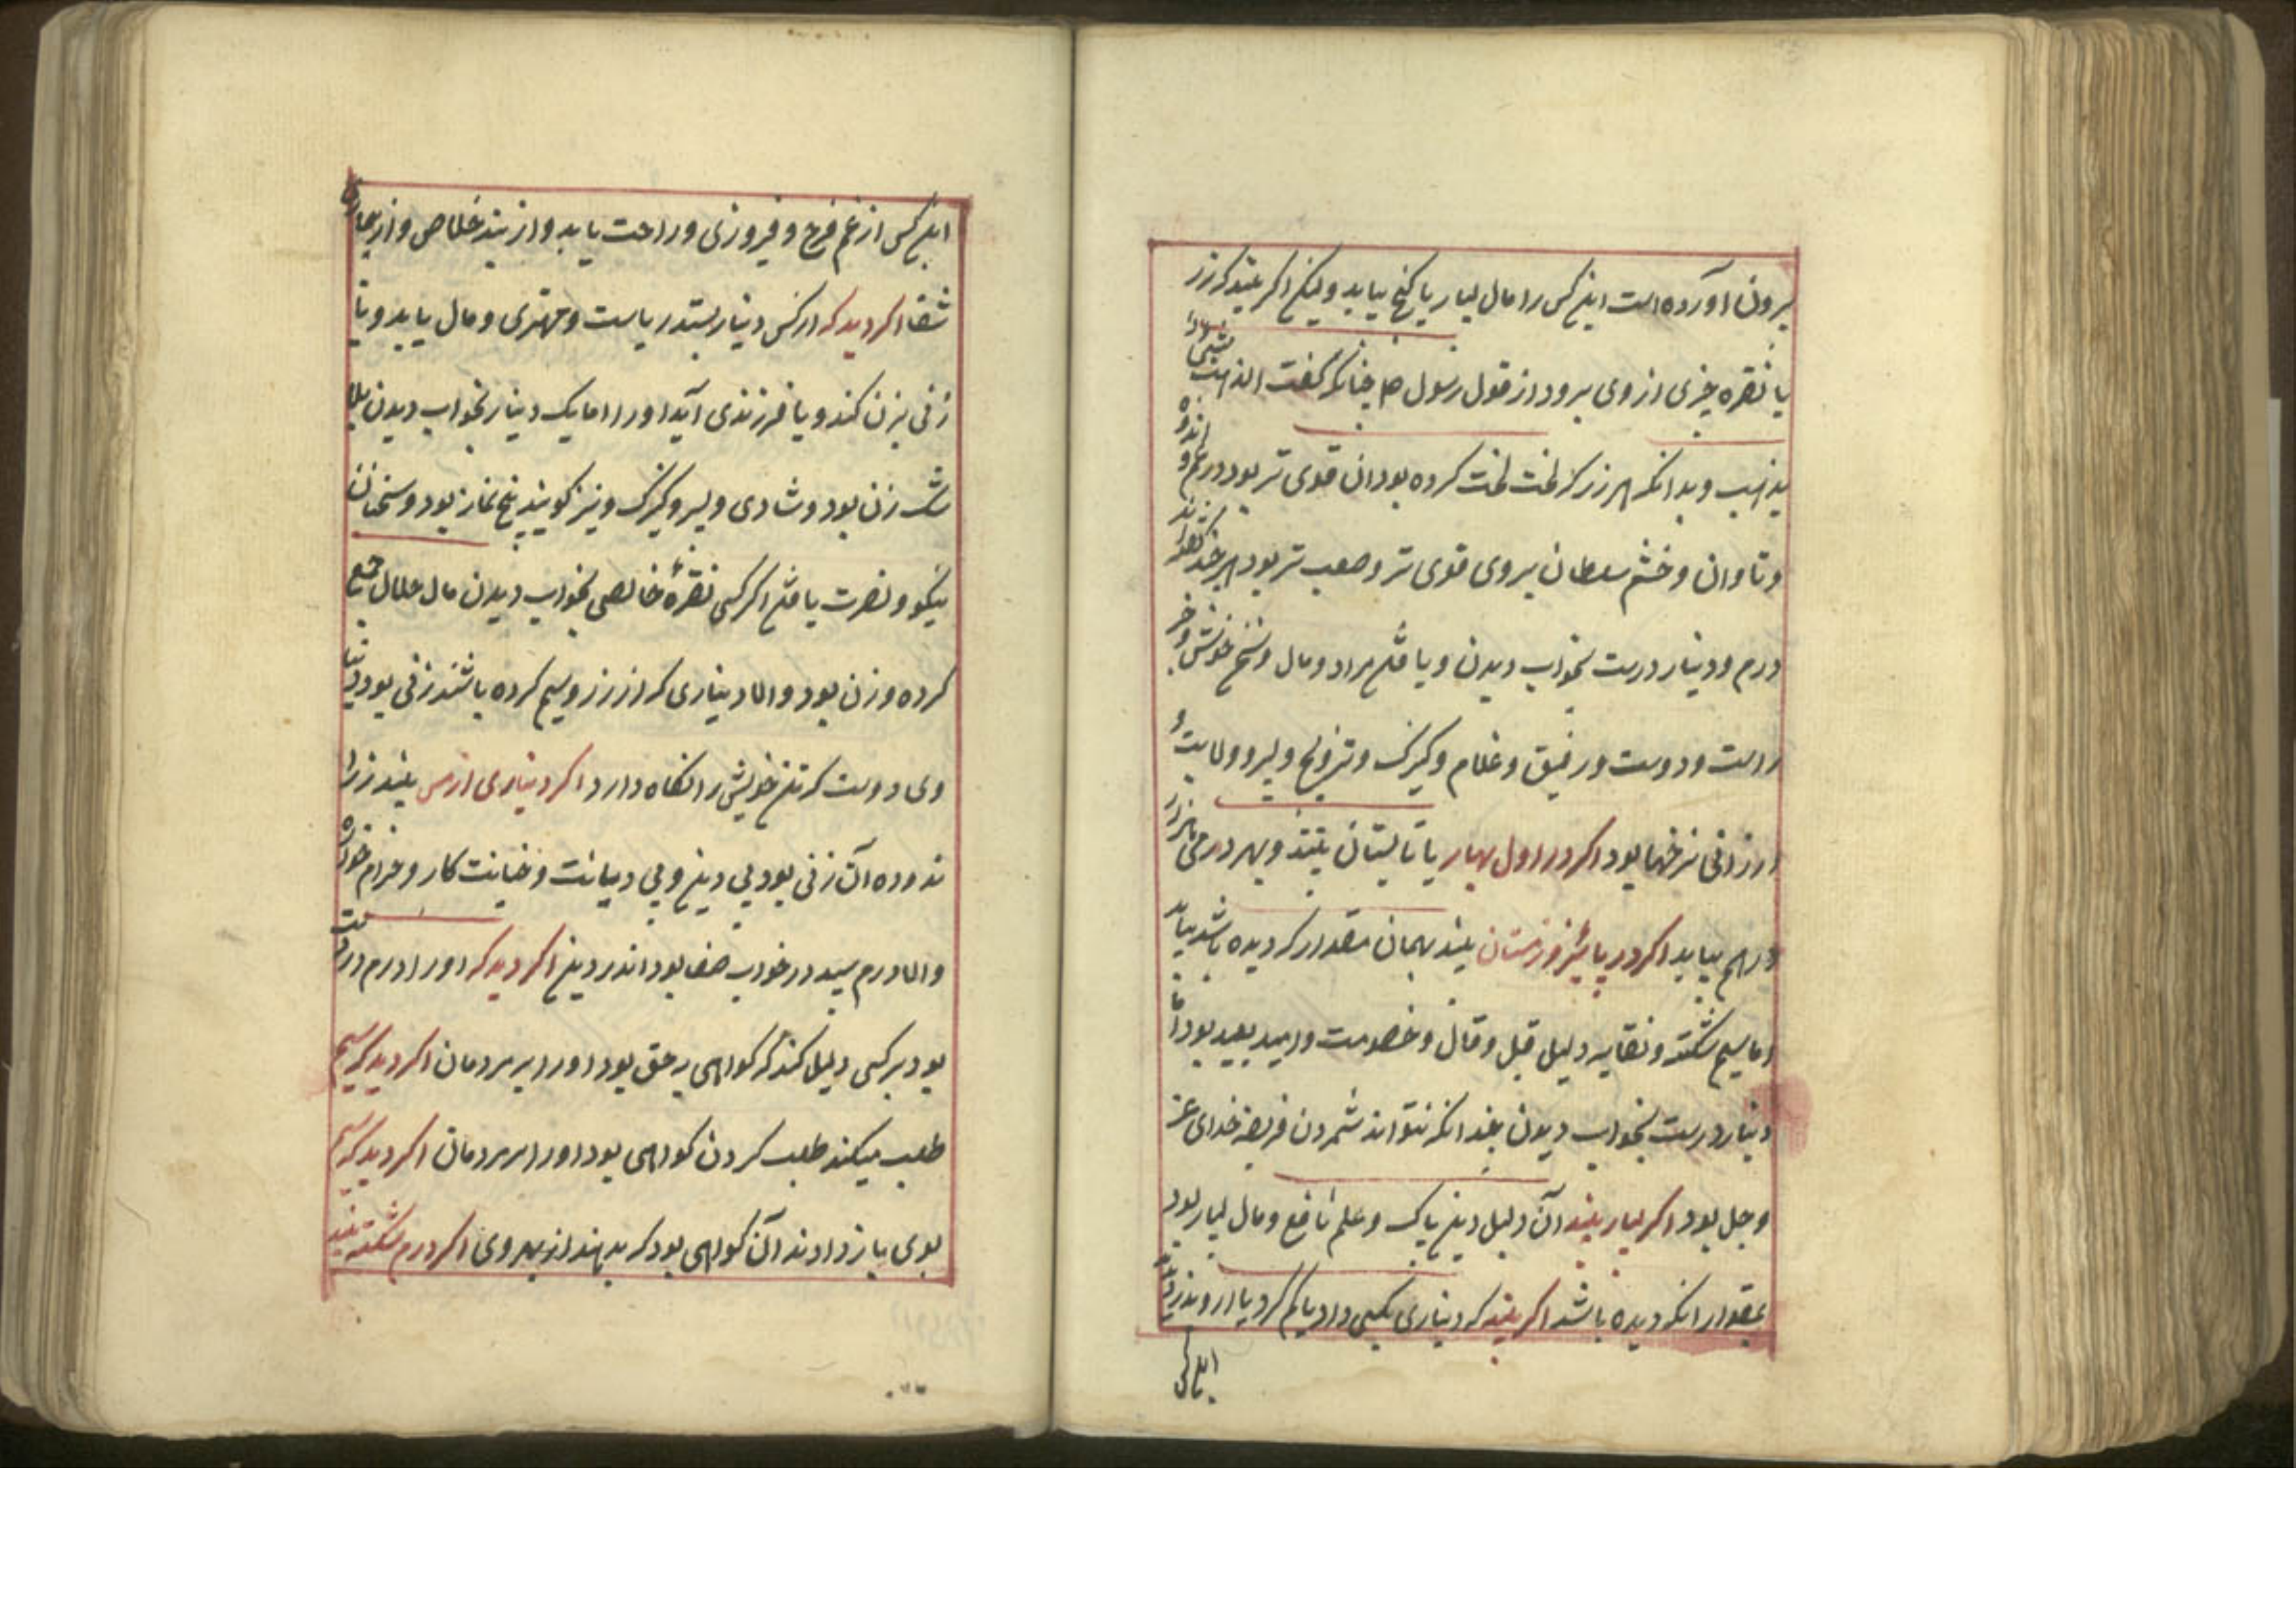 بیرون آورده است این کس را مال بسیار یا گنج بیابد ولیکن اگر بیند که زر
یا نقره چیزی از وی برود از قول رسول ص چنانکه گفت الذهب
یذهب و بدانکه هر زر که لخت لخت کرده بود آن قوی تر بود در غم و اندوه
و تاوان و خشم سلطان بروی قوی تر و صعب تر بود هر چند
درم و دینار درست بخواب دیدن و یافتن مراد و مال و سخن خوش و
راست و دوست و رفیق و غلام و کنیزک و تزویج و پسر و ولایت و
ارزانی نرخها بود اگر در اول بهار یا تابستان بیند و بهر درمی هزار
درهم بیابد اگر در پائیز و زمستان بیند بهمان مقدار که دیده باشد بیابد
اما سیم شکسته و نقایه دلیل قیل و قال و خصومت و امید بعید بود اما
دینار درست بخواب دیدن چندانکه نتواند شمردن فریضه خدای عز
و جل بود اگر بسیار بیند آن دلیل دین پاک و علم نافع و مال بسیار بود
بمقدار انکه دیده باشد اگر بیند که دیناری بکسی داد یا گم کرد یا از وی
این کس
این کس از غم فرح و فیروزی و راحت یابد و از بند خلاص و از بیماری
شفا اگر دید که از کس دینار بستد ریاست و مهتری و مال یابد و یا
زنی بزن کند و یا فرزندی آید او را اما یک دینار بخواب دیدن
زن بود و شادی و پسر و کنیزک و نیز گویند پنج نماز بود و سخنان
نیکو و نصرت یافتن اگر کسی نقرهٔ خالص بخواب دیدن مال حلال جمع
کرده و زن بود و الا دیناری که از زر و سیم کرده باشند زنی بود دنیا
وی دوست که تن خویش را نگاه دارد اگر دیناری از مس بیند زر
اندوده آن زنی بود بی دین و بی دیانت و خیانت کار و حرام خواره
و الا درم سپید در خواب صفا بود اندر دین اگر دید که او را درم درست
بود بر کسی دلیل کند که گواهی بر حق بود او را بر مردمان اگر دید که سیم
طلب میکند طلب کردن گواهی بود او را بر مردمان اگر دید که سیم
بوی باز دادند آن گواهی بود که بدهند از بهر وی اگر درم شکسته بیند